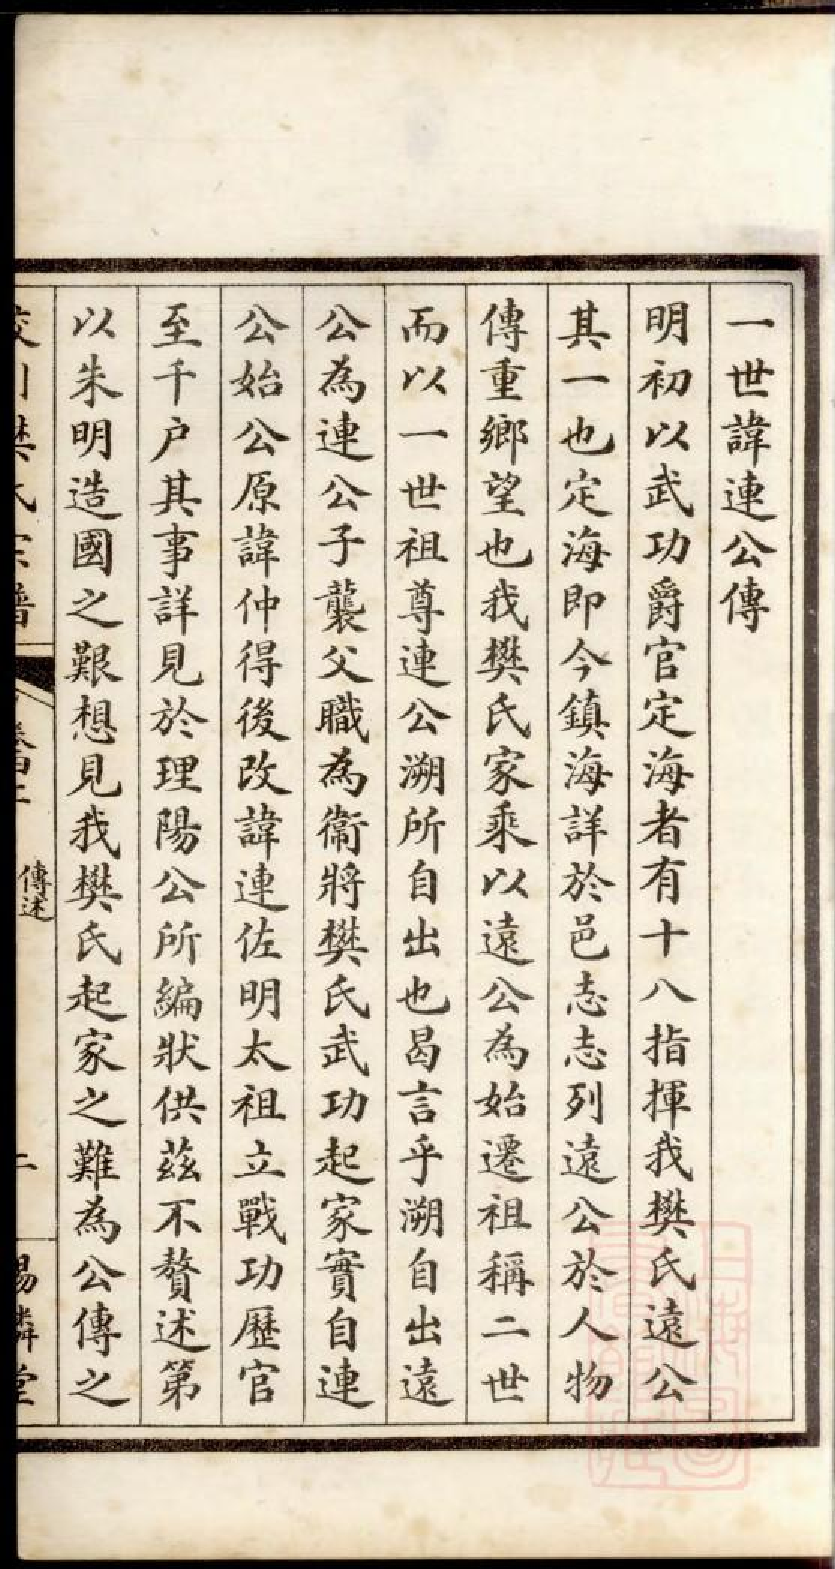 一世諱連公傳
明初以武功爵官定海者有十八指揮我樊氏遠公
其一也定海即今鎮海詳於邑志志列遠公於人物
傳重鄉望也我樊氏家乘以遠公為始遷祖稱二世
而以一世祖尊連公溯所自出也曷言乎溯自出遠
公為連公子襲父職為衞將樊氏武功起家實自連
公始公原諱仲得後改諱連佐明太祖立戰功歷官
至千户其事詳見於理陽公所編狀供茲不贅述第
以朱明造國之艱想見我樊氏起家之難為公傳之
樊氏宗譜
傳述